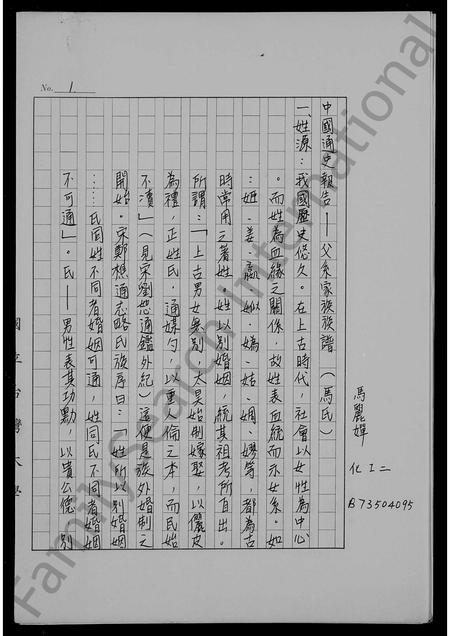 No. 1.
馬麗嬋
化工二
B73504095
中國通史報告——父系家族族譜（馬氏）
一、姓源：我國歷史悠久。在上古時代，社會以女性為中心
。而姓為血緣之關係，故姓表血統而示女系。如
：妊、姜、嬴、姒、媯、姞、姻、嫪等，都為古
時常用之著姓，姓以別婚姻，統其祖考所自出。
所謂：「上古男女無別，太昊始制嫁娶，以儷皮
為禮，正姓氏，通媒勺，以重人倫之本，而民始
不瀆」（見宋劉恕通鑑外紀）這便是族外婚制之
開始。宋鄭樵通志略氏族序曰：「姓所以別婚姻
……氏同姓不同者婚姻可通，姓同氏不同者婚姻
不可通」。氏——男性表其功勳，以貴公德，別
國立台灣大學
FamilySearch International